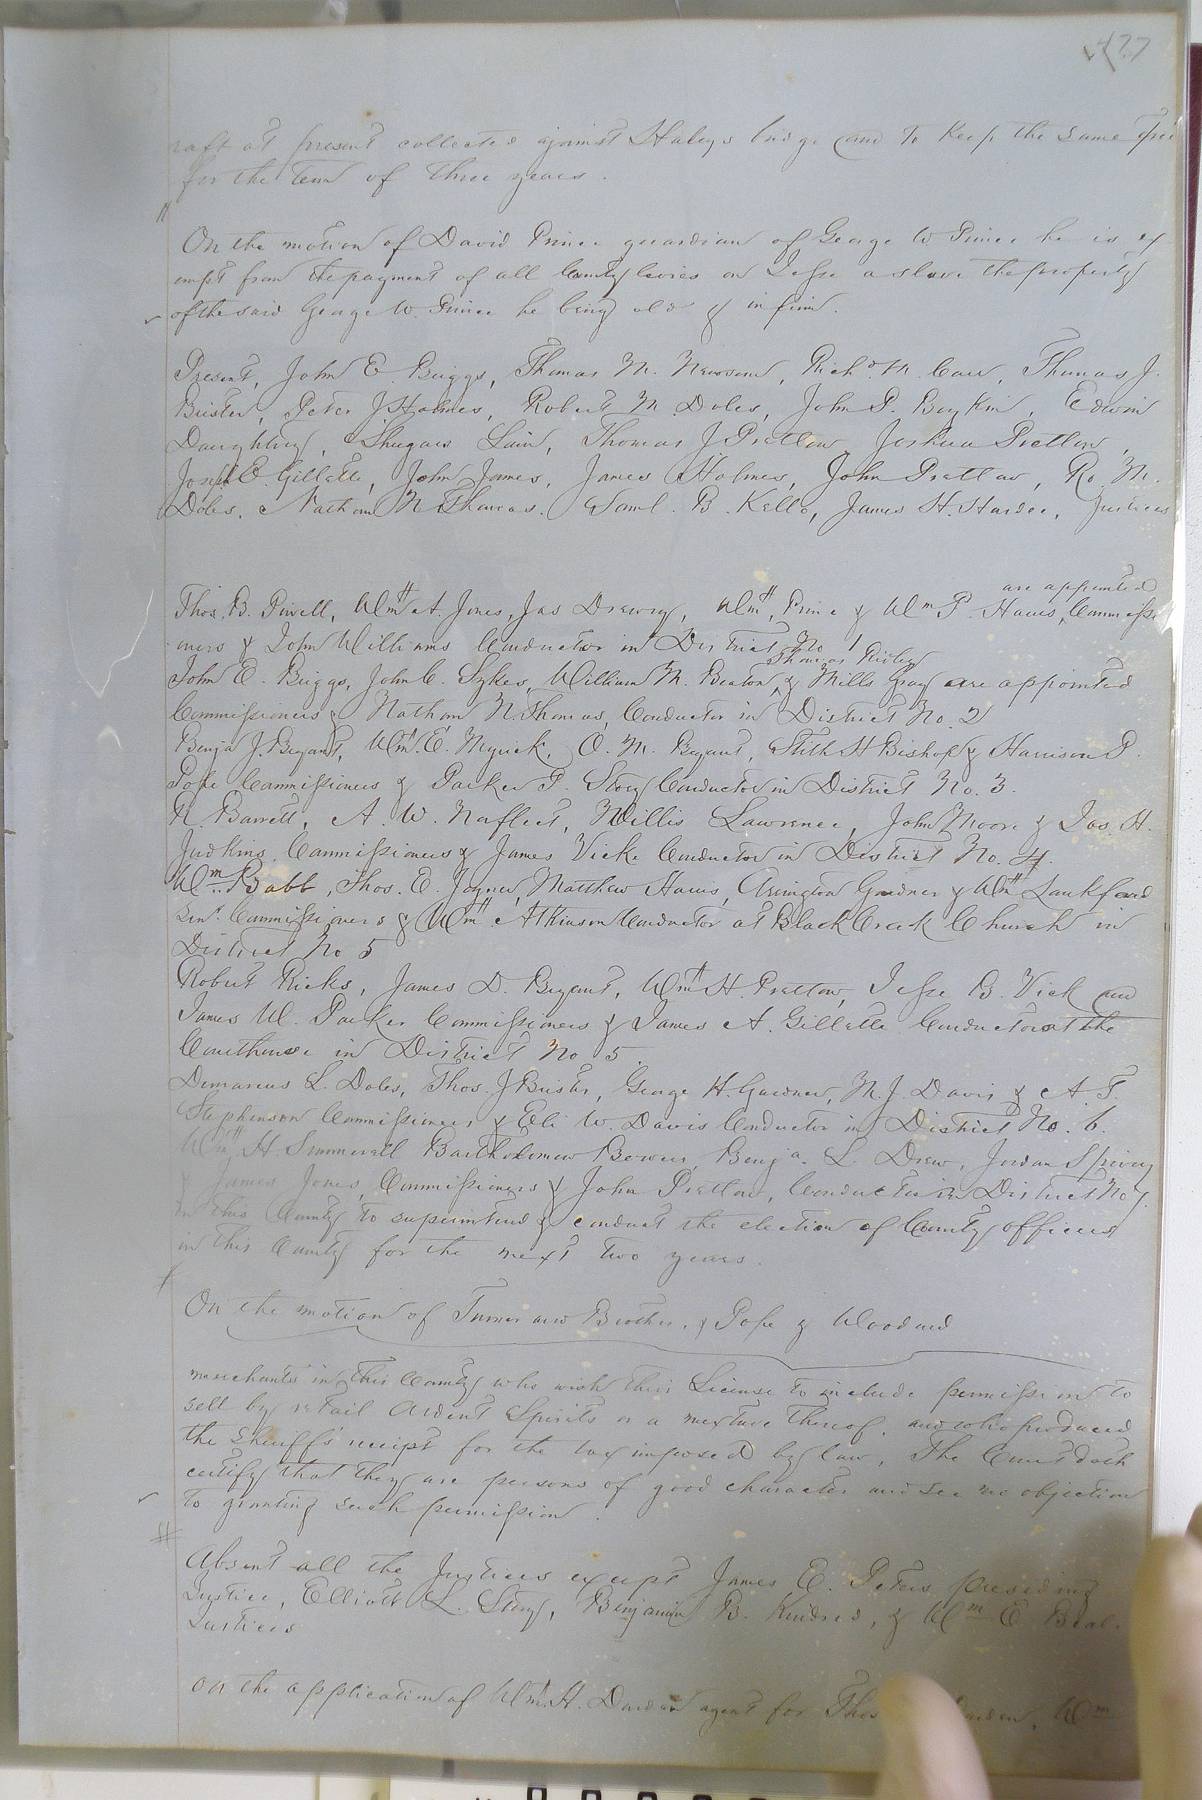 427
raft at present collected against Haleys bridge and to keep the same free
for the term of three years.
On the motion of David Prince guardian of George W Prince he is ex
empt from the payment of all County levies on Jesse a slave the property
of the said George W. Prince he being old & infirm.
Present, John E. Briggs, Thomas M. Newsom, Richd. M. Carr, Thomas J.
Brister, Peter J Holmes, Robert M Doles, John P. Boykin, Edwin
Daughtrey, Shugars Lain, Thomas J Pretlow, Joshua Pretlow,
Joseph E Gillette, John James, James Holmes, John Pretlow, Ro. M.
Doles, Nathan N Thomas, Saml. B. Kello, James H. Hardee, Justices
are appointed
Thos. B. Powell, Wm A. Jones, Jas Drewry, Wm Prince & Wm P. Haws, Commissi
oners & John Williams Conductor in District No 1
Thomas Ridley
John E. Briggs, John C. Sykes, William M. Beaton, & Mills Gray are appointed
Commissioners & Nathan N. Thomas, Conductor in District No. 2
Benja J. Bryant, Wm. E. Myrick, O. M. Bryant, Stith H Bishop & Harrison P.
Pope Commissioners & Parker P. Story Conductor in District No. 3.
N. Barrett, A. W. Norfleet, Willis Lawrence, John Moore & Jas. H.
Judkins, Commissioners & James Vick Conductor in District No. 4.
Wm. Babb, Thos. E. Joyner, Matthew Haws, Arington Gardner & Wm Lankford
Senr. Commissioners & Wm Atkinson Conductor at Black Creek Church in
District No 5
Robert Ricks, James D. Bryant, Wm H. Pretlow, Jesse B. Vick and
James W. Parker Commissioners & James A. Gillette Conductor at the
Courthouse in District No 5.
Demarcus L. Doles, Thos. J Brister, George H. Gardner, M. J. Davis & A. T.
Stephenson Commissioners & Eli W. Davis Conductor in District No. 6.
Wm H Summerell Bartholomew Bowers, Benja. L. Drew, Jordan Spivey
& James Jones, Commissioners & John Pretlow, Conductor in District No 7
in this County to superintend & conduct the election of County officers
in this County for the next two years.
On the motion of Turner and Brother, & Pope & Woodard
merchants in this County who wish their License to include permission to
sell by retail Ardent Spirits or a mixture thereof, and who produced
the Sheriffs receipt for the tax imposed by law, The Court doth
certify that they are persons of good character and see no objection
to granting such permission.
Absent all the Justices except James E. Peters presiding
Justice, Elliott L. Story, Benjamin B. Kindred, & Wm E Beal.
Justices
On the application of Wm. H. Darden agent for Thos Wm